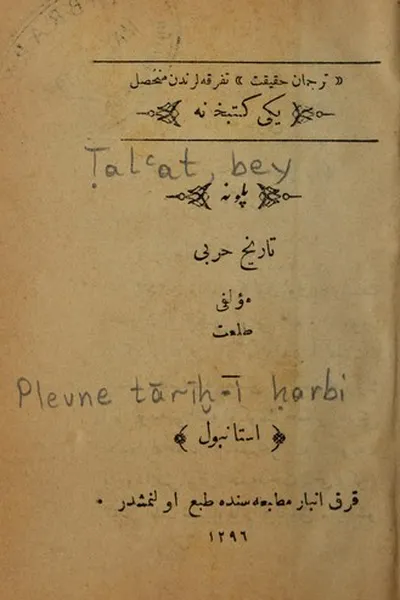 « ترجمان حقیقت » تفرقه لرندن متحصل
یکی کتبخانه
Ṭalʿat, bey
پلونه
تاریخ حربی
مؤلفی
طلعت
Plevne tārīḫ-ī ḥarbi
﴿ استانبول ﴾
قرق انبار مطبعه سنده طبع اولنمشدر .
١٢٩٦